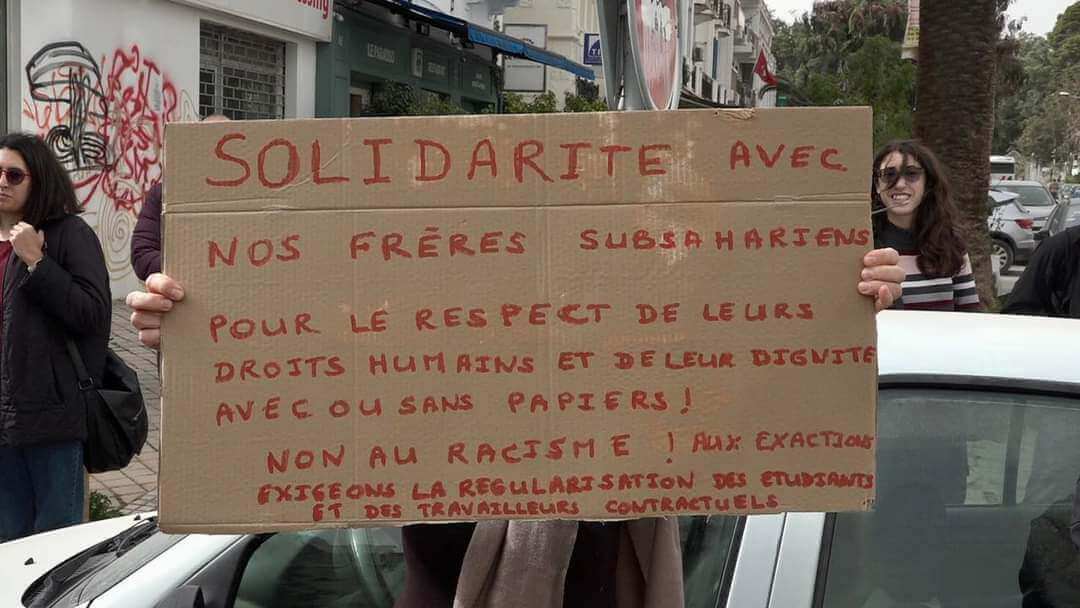 SOLIDARITE AVEC
NOS FRÈRES SUBSAHARIENS
POUR LE RESPECT DE LEURS
DROITS HUMAINS ET DE LEUR DIGNITE
AVEC OU SANS PAPIERS !
NON AU RACISME ! AUX EXACTIONS
EXIGEONS LA REGULARISATION DES ETUDIANTS
ET DES TRAVAILLEURS CONTRACTUELS